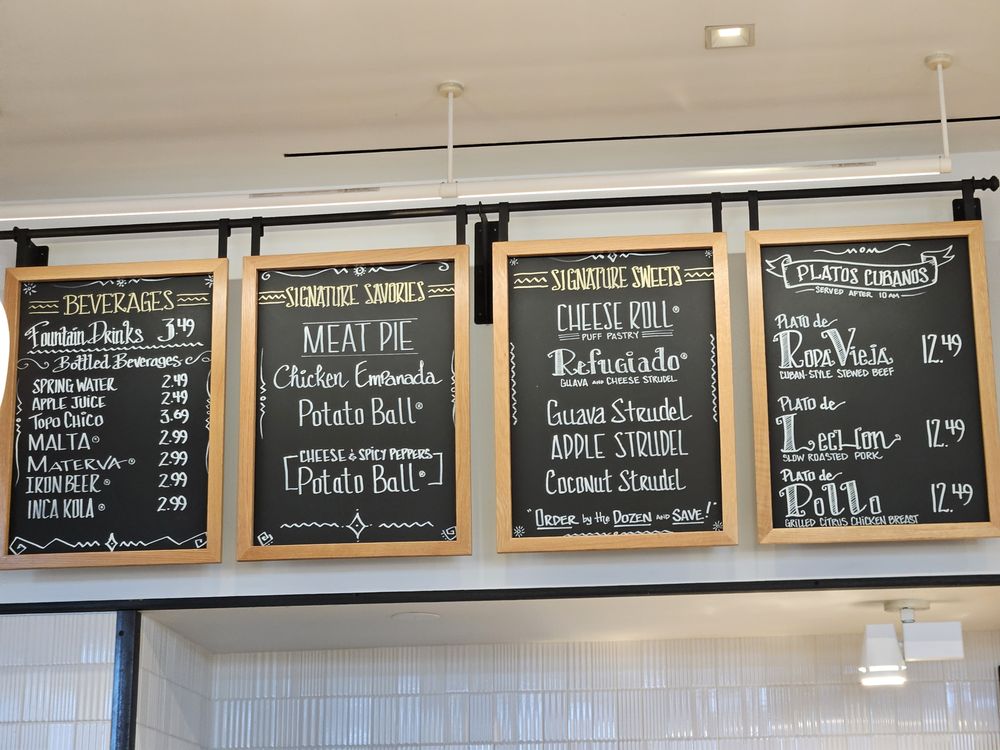 BEVERAGES
Fountain Drinks 3.49
Bottled Beverages
SPRING WATER 2.49
APPLE JUICE 2.49
Topo Chico 3.69
MALTA® 2.99
MATERVA® 2.99
IRON BEER® 2.99
INCA KOLA® 2.99
SIGNATURE SAVORIES
MEAT PIE
Chicken Empanada
Potato Ball®
CHEESE & SPICY PEPPERS
Potato Ball®
SIGNATURE SWEETS
CHEESE ROLL®
PUFF PASTRY
Refugiado®
GUAVA AND CHEESE STRUDEL
Guava Strudel
APPLE STRUDEL
Coconut Strudel
"ORDER by the DOZEN AND SAVE!"
PLATOS CUBANOS
SERVED AFTER 10 AM
PLATO de
Ropa Vieja 12.49
CUBAN-STYLE STEWED BEEF
PLATO de
Lechon 12.49
SLOW ROASTED PORK
PLATO de
Pollo 12.49
GRILLED CITRUS CHICKEN BREAST